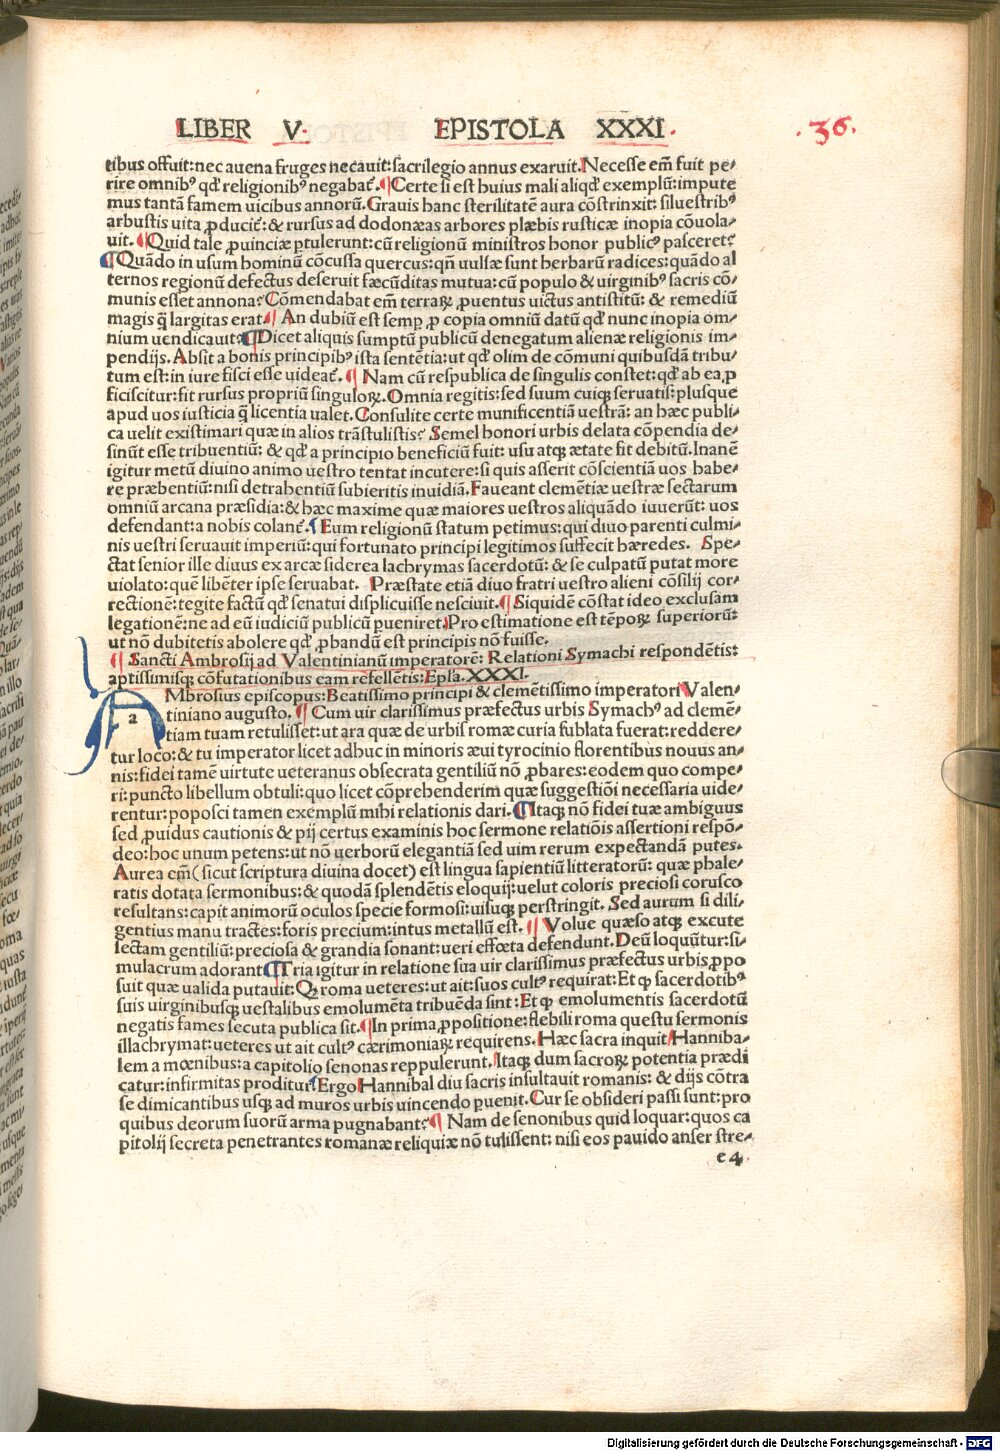 LIBER V. EPISTOLA XXXI. .36.
tibus offuit: nec auena fruges necauit: sacrilegio annus exaruit. Necesse em̄ fuit pe⸗
rire omnibꝰ qđ religionibꝰ negabat̄. ¶Certe si est huius mali aliqđ exemplū: impute
mus tantā famem uicibus annorū. Grauis hanc sterilitatē aura cōstrinxit: siluestribꝰ
arbustis uita ꝓducit̄: & rursus ad dodonæas arbores plæbis rusticæ inopia cōuola⸗
uit. ¶Quid tale ꝓuinciæ ꝑtulerunt: cū religionū ministros honor publicꝰ pasceret?
¶Quādo in usum hominū cōcussa quercus: qñ uulsæ sunt herbarū radices: quādo al
ternos regionū defectus deseruit fæcūditas mutua: cū populo & uirginibꝰ sacris cō⸗
munis esset annona? Cōmendabat em̄ terraꝝ ꝓuentus uictus antistitū: & remediū
magis q̄ largitas erat. ¶ An dubiū est semꝑ ꝓ copia omniū datū qđ nunc inopia om⸗
nium uendicauit? ¶Dicet aliquis sumptū publicū denegatum alienæ religionis im⸗
pendijs. Absit a bonis principibꝰ ista sentētia: ut qđ olim de cōmuni quibusdā tribu⸗
tum est: in iure fisci esse uideat̄. ¶ Nam cū respublica de singulis constet: qđ ab ea ꝓ
ficiscitur: fit rursus propriū singuloꝝ. Omnia regitis: sed suum cuiqꝫ seruatis: plusque
apud uos iusticia q̄ licentia ualet. Consulite certe munificentiā uestrā: an hæc publi⸗
ca uelit existimari quæ in alios trāstulistis? Semel honori urbis delata cōpendia de⸗
sinūt esse tribuentiū: & qđ a principio beneficiū fuit: usu atqꝫ ætate fit debitū. Inanē
igitur metū diuino animo uestro tentat incutere: si quis asserit cōscientiā uos habe⸗
re præbentiū: nisi detrahentiū subieritis inuidiā. Faueant clemētiæ uestræ sectarum
omniū arcana præsidia: & hæc maxime quæ maiores uestros aliquādo iuuerūt: uos
defendant: a nobis colant̄. ¶Eum religionū statum petimus: qui diuo parenti culmi⸗
nis uestri seruauit imperiū: qui fortunato principi legitimos suffecit hæredes. Spe⸗
ctat senior ille diuus ex arcæ siderea lachrymas sacerdotū: & se culpatū putat more
uiolato: quē libēter ipse seruabat. Præstate etiā diuo fratri uestro alieni cōsilij cor⸗
rectionē: tegite factū qđ senatui displicuisse nesciuit. ¶Siquidē cōstat ideo exclusam
legationē: ne ad eū iudiciū publicū pueniret. Pro estimatione est tēpoꝝ superiorū:
ut nō dubitetis abolere qđ ꝓbandū est principis nō fuisse.
¶ Sancti Ambrosij ad Valentinianū imperatorē: Relationi Symachi respondētis:
aptissimisqꝫ cōfutationibus eam refellētis: Epła. XXXI.
AMbrosius episcopus: Beatissimo principi & clemētissimo imperatori Valen⸗
tiniano augusto. ¶ Cum uir clarissimus præfectus urbis Symachꝰ ad clemē⸗
tiam tuam retulisset: ut ara quæ de urbis romæ curia sublata fuerat: reddere⸗
tur loco: & tu imperator licet adhuc in minoris æui tyrocinio florentibus nouus an⸗
nis: fidei tamē uirtute ueteranus obsecrata gentiliū nō ꝓbares: eodem quo compe⸗
ri: puncto libellum obtuli: quo licet cōprehenderim quæ suggestiōi necessaria uide⸗
rentur: poposci tamen exemplū mihi relationis dari. ¶Itaqꝫ nō fidei tuæ ambiguus
sed ꝓuidus cautionis & pij certus examinis hoc sermone relatiōis assertioni respō⸗
deo: hoc unum petens: ut nō uerborū elegantiā sed uim rerum expectandā putes.
Aurea em̄ (sicut scriptura diuina docet) est lingua sapientiū litteratorū: quæ phale⸗
ratis dotata sermonibus: & quodā splendētis eloquij: uelut coloris preciosi corusco
resultans: capit animorū oculos specie formosi: uisuqꝫ perstringit. Sed aurum si dili⸗
gentius manu tractes: foris precium: intus metallū est. ¶ Volue quæso atqꝫ excute
sectam gentiliū: preciosa & grandia sonant: ueri effœta defendunt. Deū loquūtur: si⸗
mulacrum adorant. ¶Tria igitur in relatione sua uir clarissimus præfectus urbis ꝓpo
suit quæ ualida putauit: Qꝫ roma ueteres: ut ait: suos cultꝰ requirat: Et ꝙ sacerdotibꝰ
suis uirginibusqꝫ uestalibus emolumēta tribuēda sint: Et ꝙ emolumentis sacerdotū
negatis fames secuta publica sit. ¶In prima ꝓpositione: flebili roma questu sermonis
illachrymat: ueteres ut ait cultꝰ cærimoniaꝝ requirens. Hæc sacra inquit Hanniba⸗
lem a mœnibus: a capitolio senonas reppulerunt. Itaqꝫ dum sacroꝝ potentia prædi
catur: infirmitas proditur. ¶Ergo Hannibal diu sacris insultauit romanis: & dijs cōtra
se dimicantibus usqꝫ ad muros urbis uincendo ꝑuenit. Cur se obsideri passi sunt: pro
quibus deorum suorū arma pugnabant? ¶ Nam de senonibus quid loquar: quos ca
pitolij secreta penetrantes romanæ reliquiæ nō tulissent: nisi eos pauido anser stre⸗
e4.
Digitalisierung gefördert durch die Deutsche Forschungsgemeinschaft - DFG